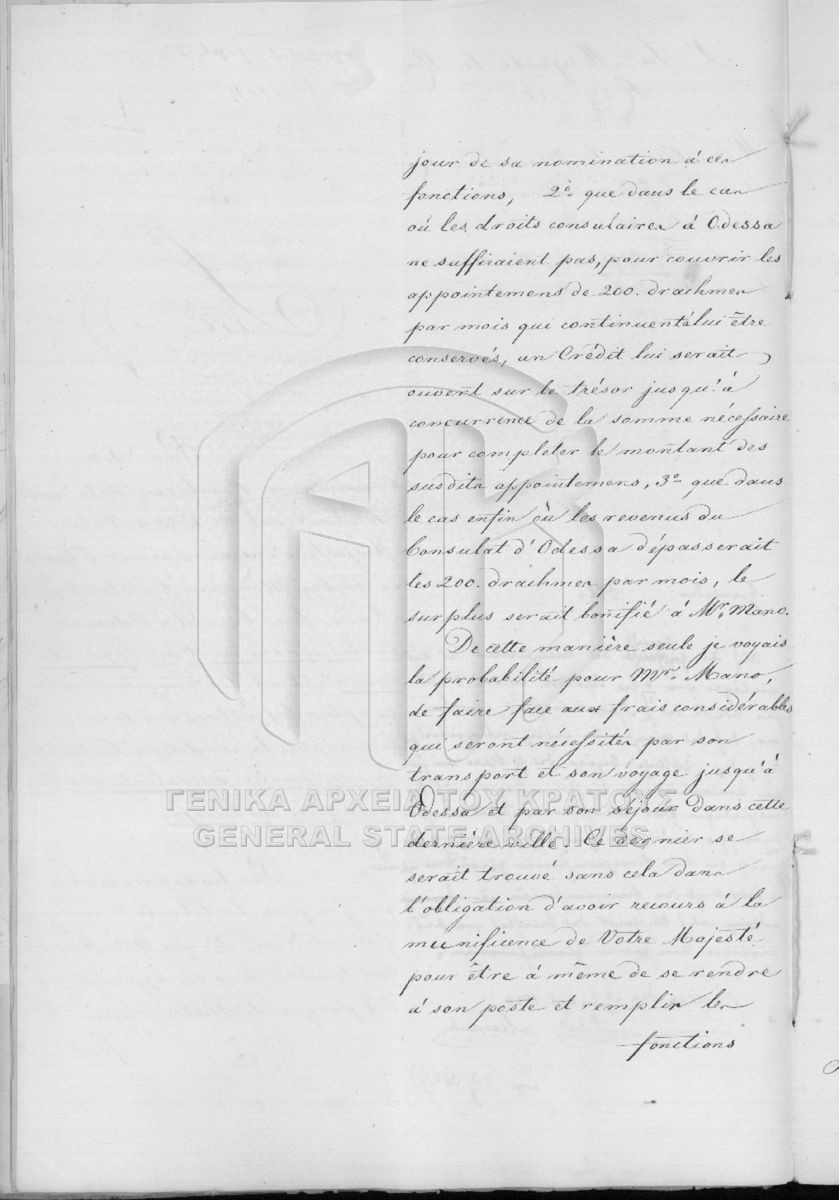 jour de sa nomination à ces
fonctions, 2o. que dans le cas
où les droits consulaires à Odessa
ne suffiraient pas, pour couvrir les
appointemens de 200. drachmes
par mois qui continuent à lui être
conservés, un Crédit lui serait
ouvert sur le trésor jusqu'à
concurrence de la somme nécessaire
pour completer le montant des
susdits appointemens, 3o. que dans
le cas enfin où les revenus du
Consulat d'Odessa dépasserait
les 200. drachmes par mois, le
surplus serait bonifié à Mr. Mano.
De cette manière seule je voyais
la probabilité pour Mr. Mano,
de faire face aux frais considérables
qui seront nécessités par son
transport et son voyage jusqu'à
ΓΕΝΙΚΑ ΑΡΧΕΙΑ ΤΟΥ ΚΡΑΤΟΥΣ
Odessa et par son séjour dans cette
GENERAL STATE ARCHIVES
dernière ville. Ce dernier se
serait trouvé sans cela dans
l'obligation d'avoir recours à la
munificence de Votre Majesté
pour être à même de se rendre
à son poste et remplir les
fonctions